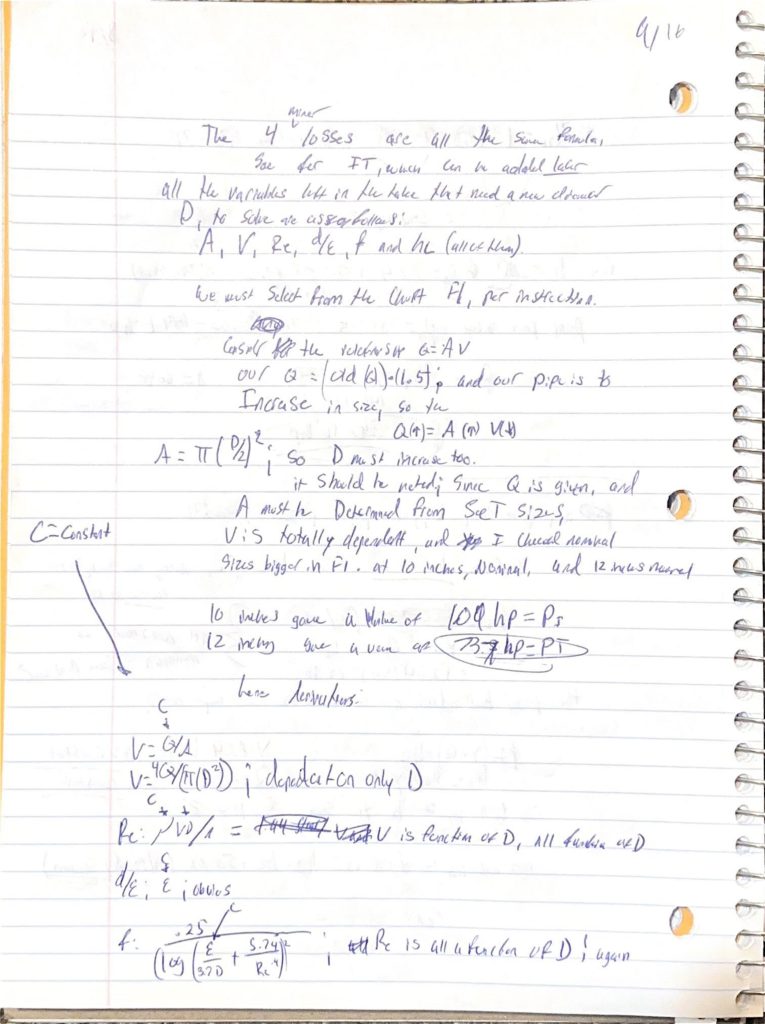 9/16
minor
The 4 losses are all the same formula,
See for IT, which can be added later
all the variables left in the take that need a new diameter
D, to solve are as follows:
A, V, Re, d/ε, f and hL (all of them).
We must Select from the Chart F1, per instruction.
Consider the relationship Q=AV
our Q = (old Q)·(1.5); and our pipe is to
Increase in size, so the
Q(↑)= A(↑) V(↓)
A = π(D/2)²; so D must increase too.
it should be noted; Since Q is given, and
A must be Determined from Set Sizes,
C=Constant
V is totally dependent, and I checked nominal
Sizes bigger in F1. at 10 inches, Nominal, and 12 inches nominal
10 inches gave a value of 104 hp = Ps
12 inches gave a value of hp=PT
here derivations:
C
V = Q/A
V=4Q/(π(D²)) ; only D
C
Re: VD/ = V is function of D, all function of D
C
d/ε; ε ; obvious
C
f: .25/(log(ε/3.7D + 5.74/Re^.9))² ; Re is all a function of D ; again